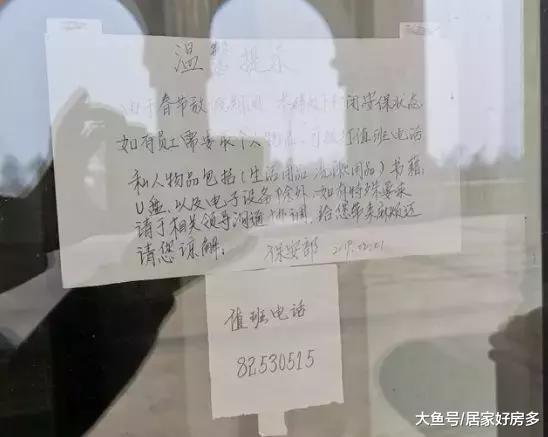 温馨提示
由于春节放假期间 本
闭学保状态
如有员工需要取个人物品，可拨打值班电话
私人物品包括(生活用品、洗漱用品)书籍，
U盘，以及电子设备除外，如有特殊要求
请于相关领导沟通协调，给您带来麻烦还
请您谅解！ 保安部
值班电话
82530515
大鱼号/居家好房多